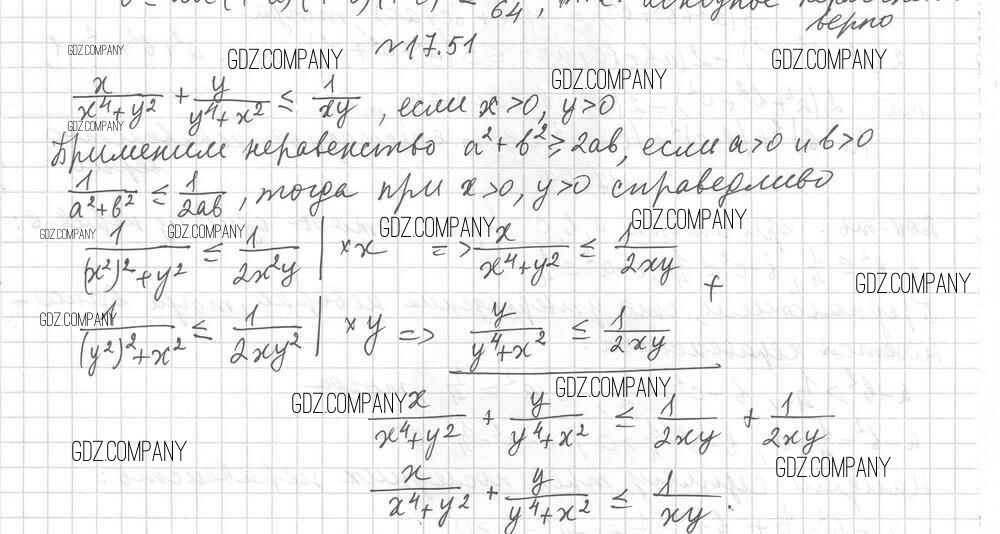 64, исходное
верно
№17.51
GDZ.COMPANY GDZ.COMPANY GDZ.COMPANY
GDZ.COMPANY
x/(x⁴+y²) + y/(y⁴+x²) ≤ 1/xy, если x>0, y>0
GDZ.COMPANY
Применим неравенство a²+b²≥2ab, если a>0 и b>0
1/(a²+b²) ≤ 1/2ab, тогда при x>0, y>0 справедливо
GDZ.COMPANY GDZ.COMPANY GDZ.COMPANY GDZ.COMPANY
1/((x²)²+y²) ≤ 1/2x²y | ×x => x/(x⁴+y²) ≤ 1/2xy
+
GDZ.COMPANY
GDZ.COMPANY
1/((y²)²+x²) ≤ 1/2xy² | ×y => y/(y⁴+x²) ≤ 1/2xy
GDZ.COMPANY GDZ.COMPANY
x/(x⁴+y²) + y/(y⁴+x²) ≤ 1/2xy + 1/2xy
GDZ.COMPANY GDZ.COMPANY
x/(x⁴+y²) + y/(y⁴+x²) ≤ 1/xy.